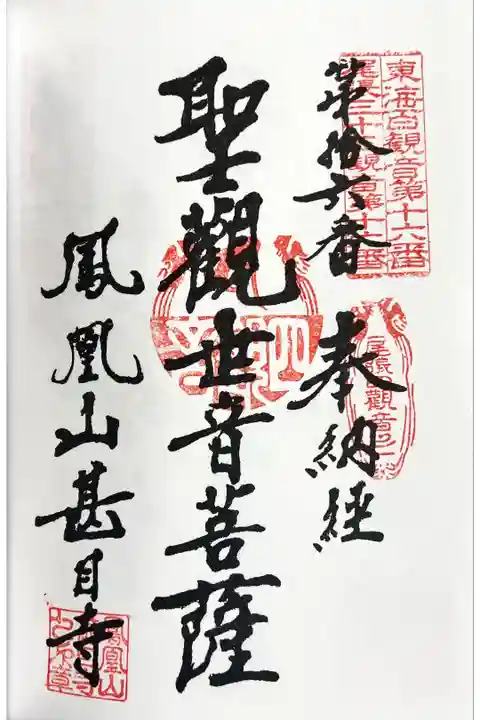 東海百観音第十六番
尾張三十三観音第十六番
第拾六番
奉納経
聖觀世音菩薩
鳳凰山甚目寺